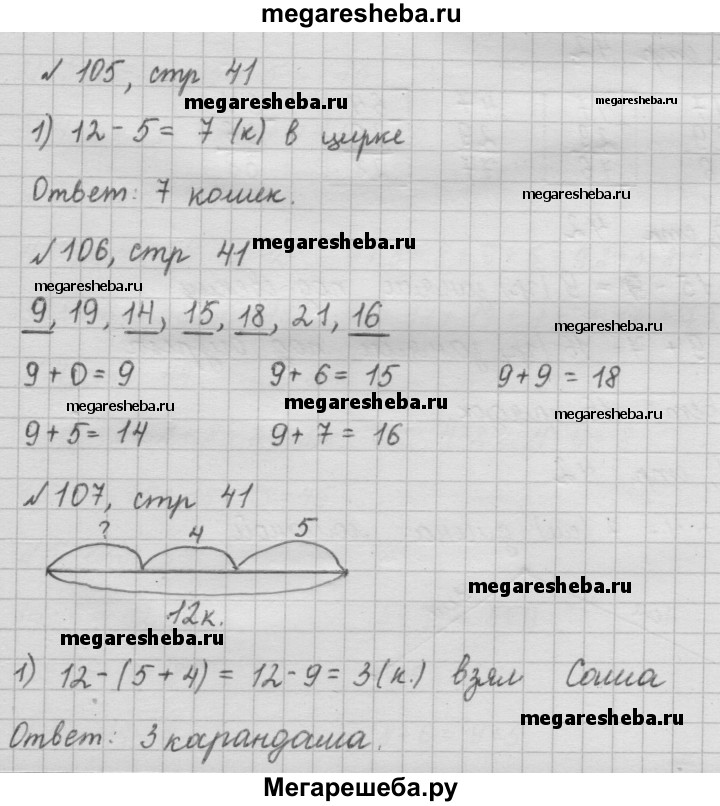 megaresheba.ru
№ 105, стр 41
megaresheba.ru megaresheba.ru
1) 12 - 5 = 7 (к) в цирке
Ответ: 7 кошек. megaresheba.ru
№ 106, стр 41 megaresheba.ru
megaresheba.ru
9, 19, 14, 15, 18, 21, 16 megaresheba.ru
9 + 0 = 9 9 + 6 = 15 9 + 9 = 18
megaresheba.ru megaresheba.ru megaresheba.ru
9 + 5 = 14 9 + 7 = 16
№ 107, стр 41
? 4 5
megaresheba.ru
12к.
megaresheba.ru
1) 12 - (5 + 4) = 12 - 9 = 3 (к.) взял Саша
megaresheba.ru
Ответ: 3 карандаша.
Мегарешеба.ру